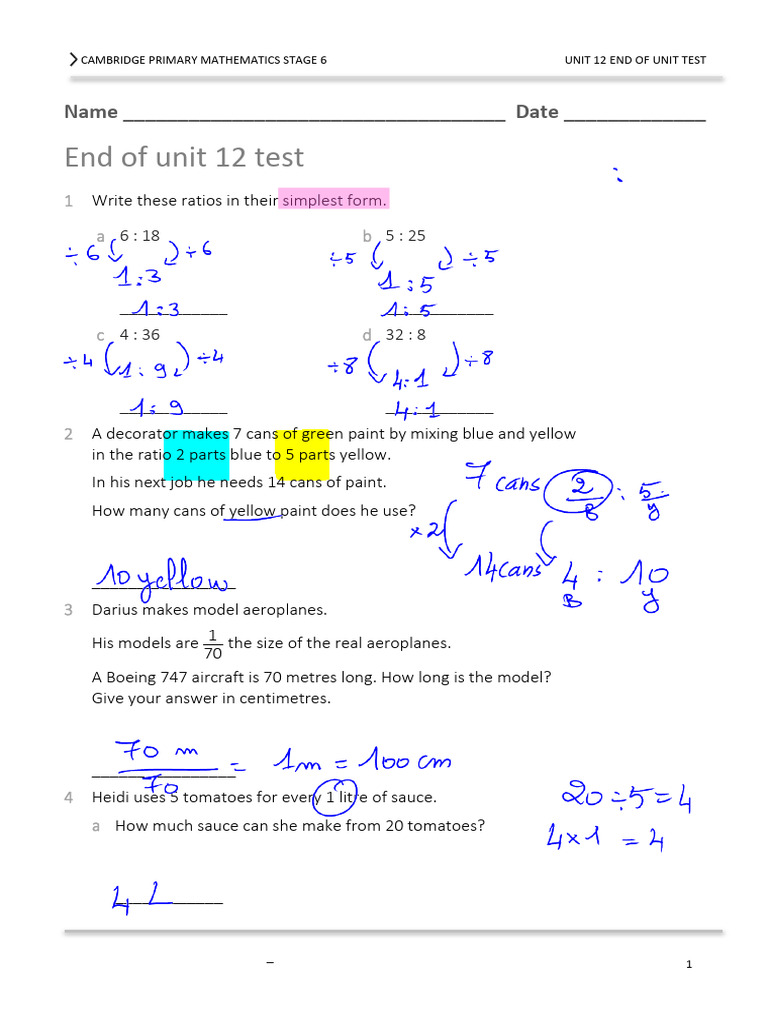 CAMBRIDGE PRIMARY MATHEMATICS STAGE 6 UNIT 12 END OF UNIT TEST
Name ____________________________________ Date _____________
End of unit 12 test
:
1 Write these ratios in their simplest form.
a 6 : 18 b 5 : 25
÷6 ÷6 ÷5 ÷5
1:3 1:5
1:3 1:5
c 4 : 36 d 32 : 8
÷4 1:9 ÷4 ÷8 4:1 ÷8
1:9 4:1
2 A decorator makes 7 cans of green paint by mixing blue and yellow
in the ratio 2 parts blue to 5 parts yellow.
In his next job he needs 14 cans of paint.
How many cans of yellow paint does he use?
7 cans 2 : 5
B y
×2
14 cans 4 : 10
B y
10 yellow
3 Darius makes model aeroplanes.
His models are 1/70 the size of the real aeroplanes.
A Boeing 747 aircraft is 70 metres long. How long is the model?
Give your answer in centimetres.
70 m / 70 = 1m = 100 cm
4 Heidi uses 5 tomatoes for every 1 litre of sauce.
20 ÷ 5 = 4
a How much sauce can she make from 20 tomatoes?
4 × 1 = 4
4 L
–
1